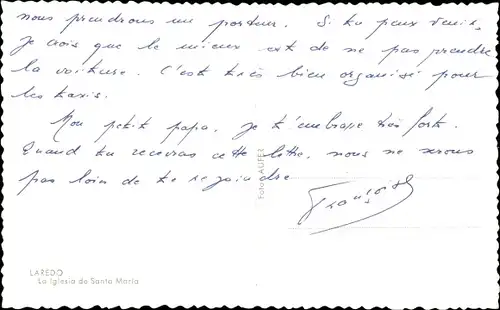 nous prendrons un porteur. Si tu peux venir,
je crois que le mieux est de ne pas prendre
la voiture. C'est très bien organisé pour
les taxis.
Mon petit papa, je t'embrasse très fort.
Quand tu recevras cette lettre, nous ne serons
pas loin de te rejoindre
Françoise
Foto LAUFER
LAREDO
La Iglesia de Santa María